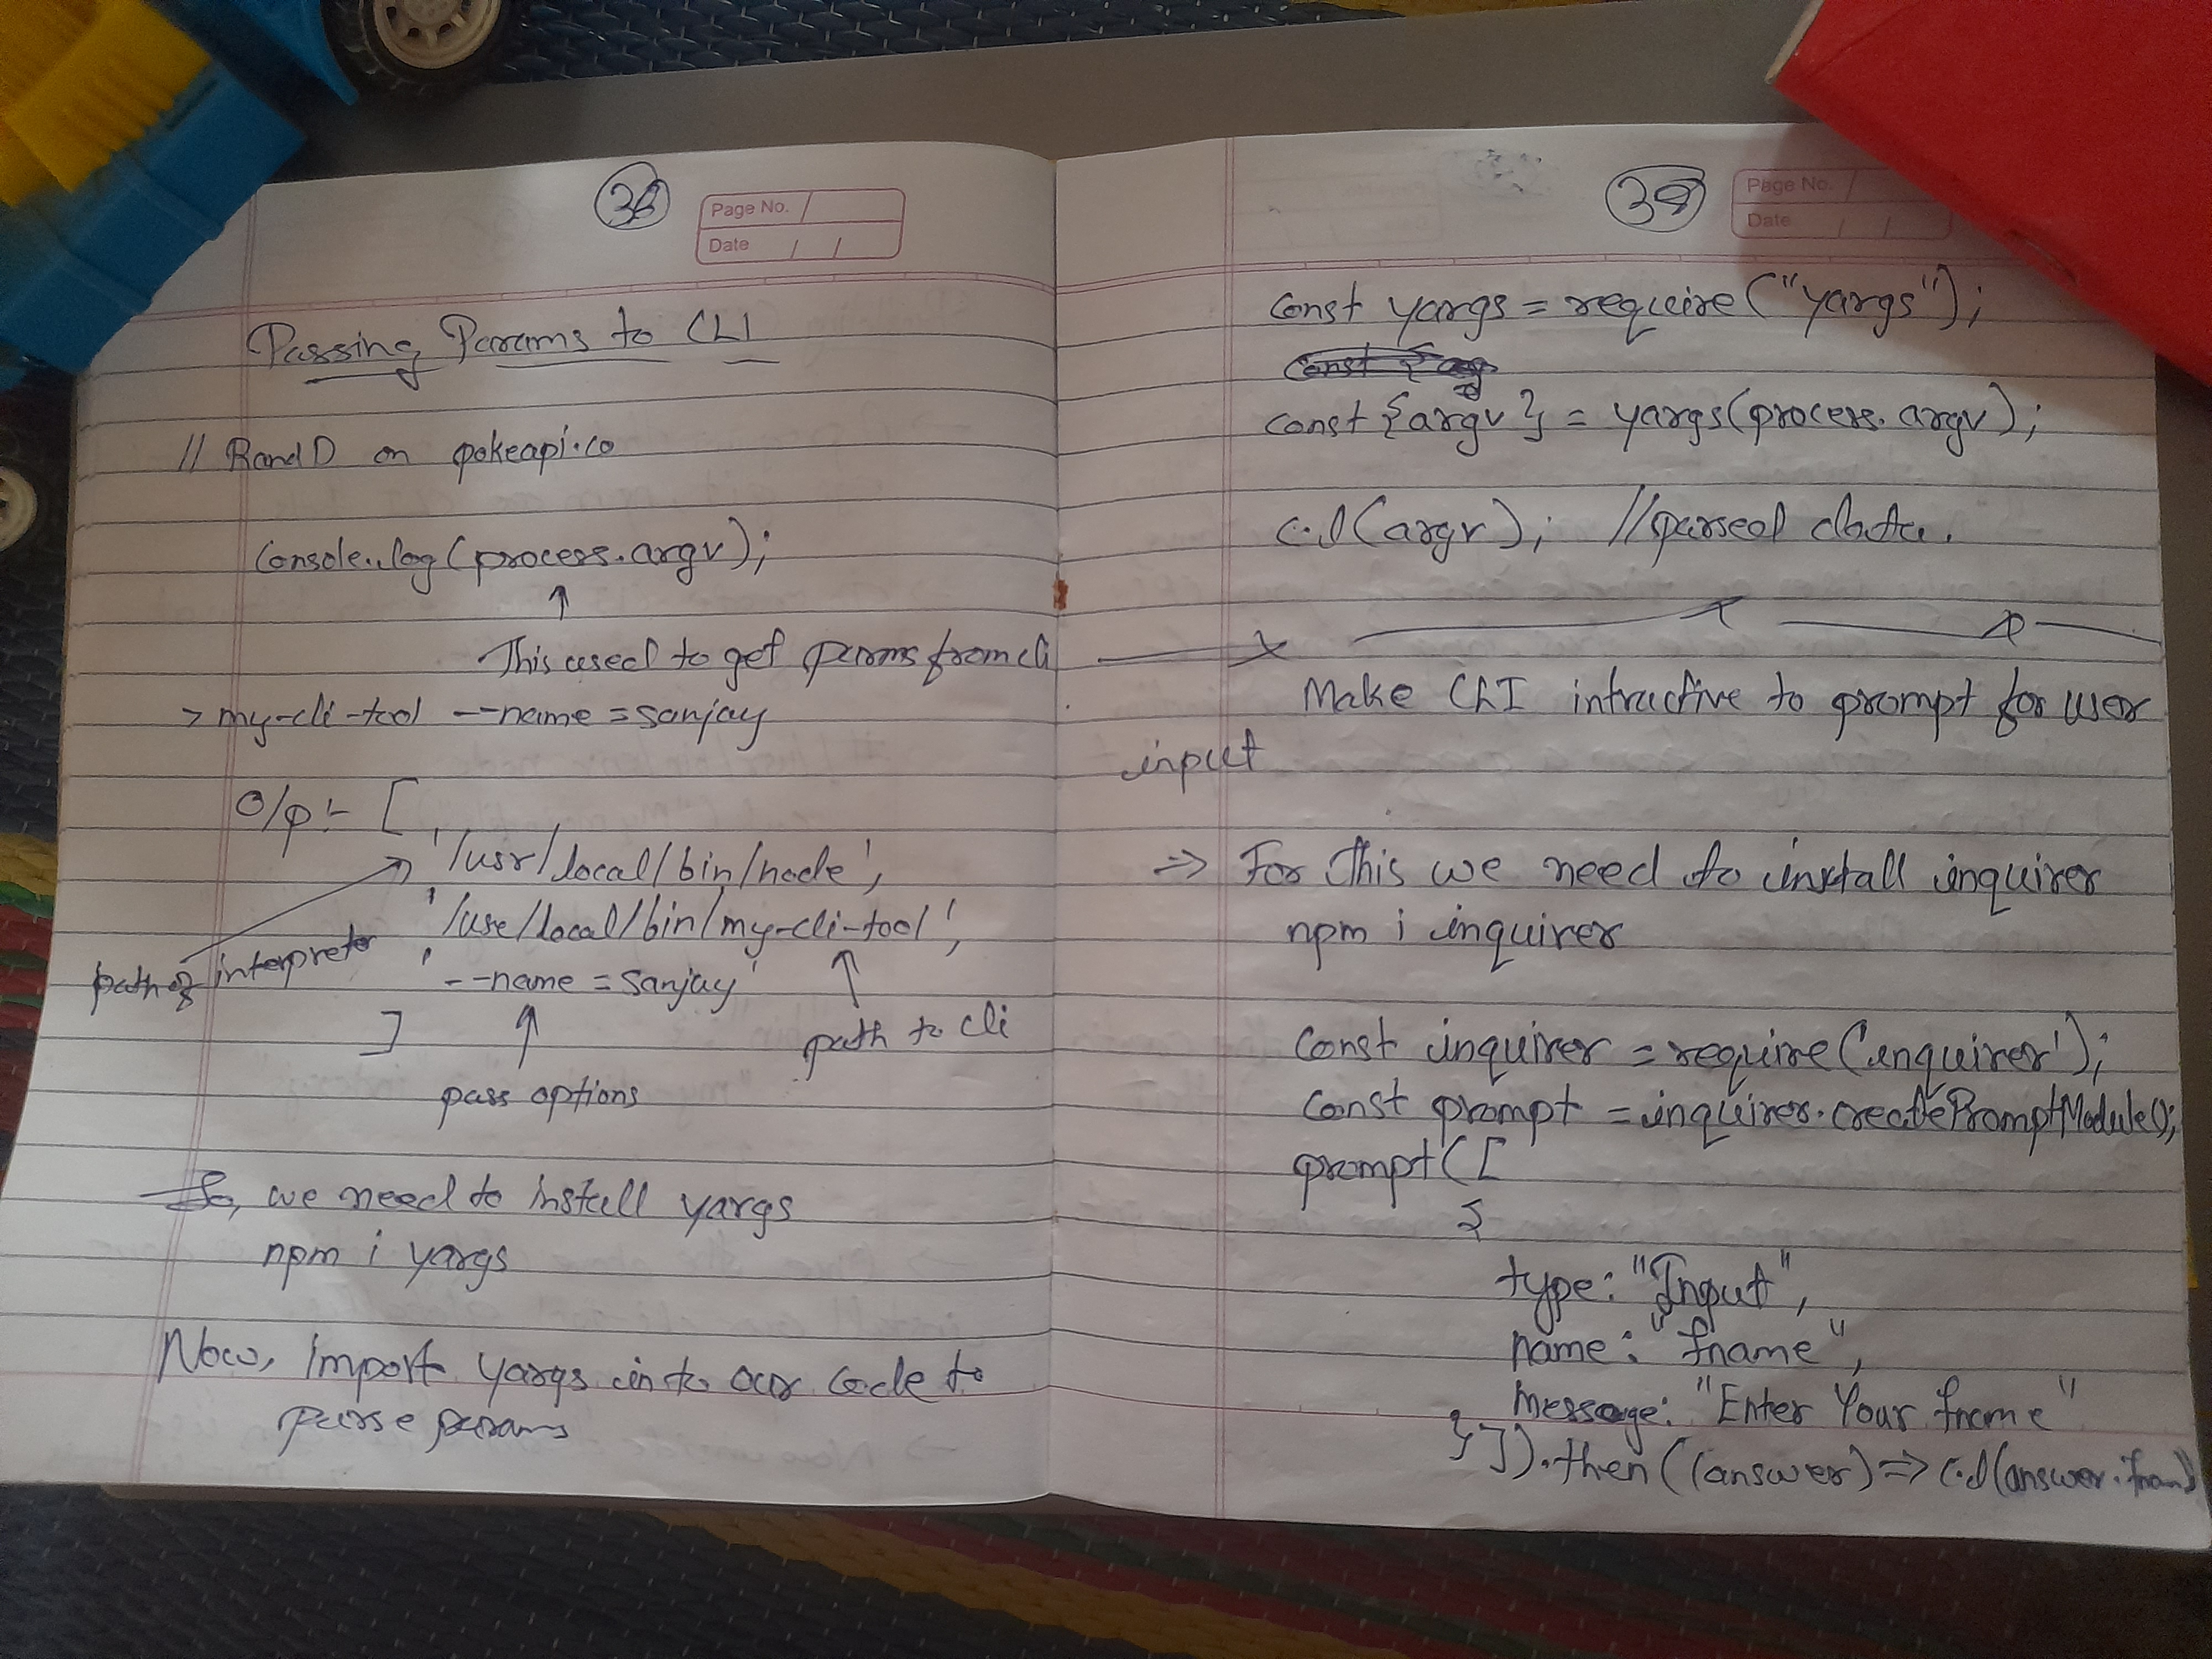 Page No.
Date / /
Passing Params to CLI
// RandD on pokeapi.co
Console.log(process.argv);
This used to get params from cli
> my-cli-tool --name=sanjay
O/p:- [
'/usr/local/bin/node',
'/use/local/bin/my-cli-tool',
path of interpreter
'--name=sanjay'
]
path to cli
pass options
So, we need to install yargs
npm i yargs
Now, import yargs into our code to
parse params
Page No.
Date / /
const yargs = require("yargs");
const {argv} = yargs(process.argv);
c.l(argv); //parsed data.
Make CLI intractive to prompt for user
input
=> For this we need to install inquirer
npm i inquirer
const inquirer = require('inquirer');
const prompt = inquirer.createPromptModule();
prompt([
{
type: "Input",
name: "fname",
message: "Enter Your fname"
}]).then((answer) => c.l(answer.fname)